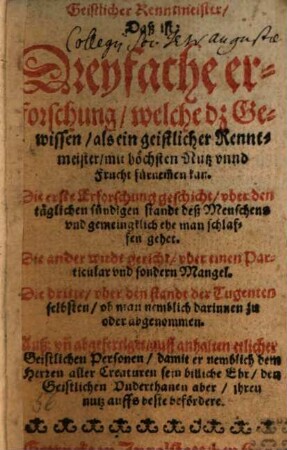 Geistlicher Renntmeister/
Daß ist/
Collegij Soc. Jesu Augustæ
Dreyfache er-
forschung/ welche dz Ge-
wissen/ als ein geistlicher Rennt-
meister/ mit höchsten Nutz vnnd
Frucht fürnemen kan.
Die erste Erforschung geschicht/ vber den
täglichen sündigen standt deß Menschens
vnd gemeingklich ehe man schlaf-
fen gehet.
Die ander wirdt gericht/ vber einen Par-
ticular vnd sondern Mangel.
Die dritte/ vber den standt der Tugenten
selbsten/ ob man nemblich darinnen zu
oder abgenommen.
Auß vñ abgefertigt/ auff anhalten etlicher
Geistlichen Personen/ damit er nemblich dem
Herren aller Creaturen sein billiche Ehr/ den
Geistlichen Vnderthanen aber/ ihren
nutz auffs beste befördere.